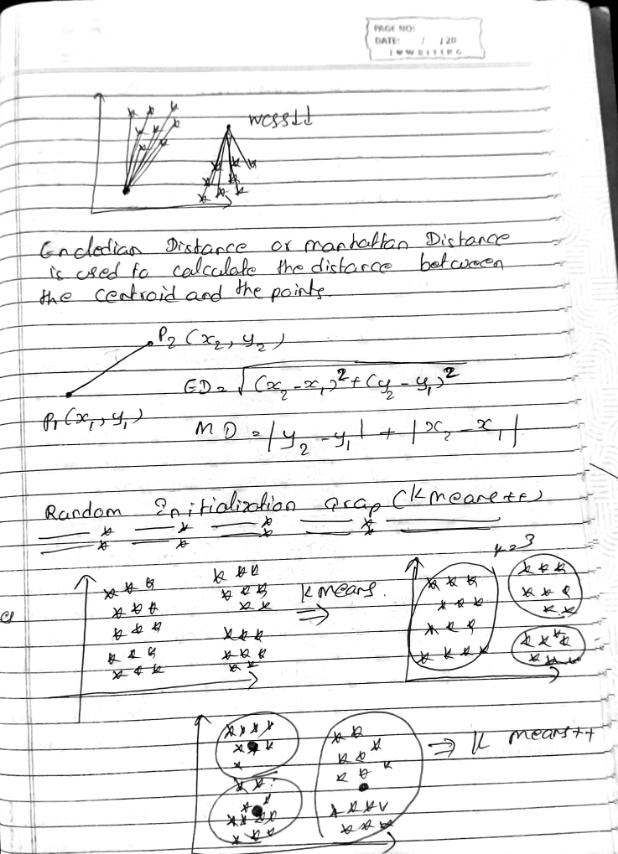 PAGE NO:
DATE: / /20
wcss↓↓
Encledian Distance or manhattan Distance
is used to calculate the distance between
the centroid and the points.
P₂ (x₂, y₂)
ED = √(x₂-x₁)²+(y₂-y₁)²
P₁(x₁, y₁)
MD = |y₂-y₁| + |x₂-x₁|
Random Initialization (K means++)
k=3
K means.
⇒
⇒ K means++